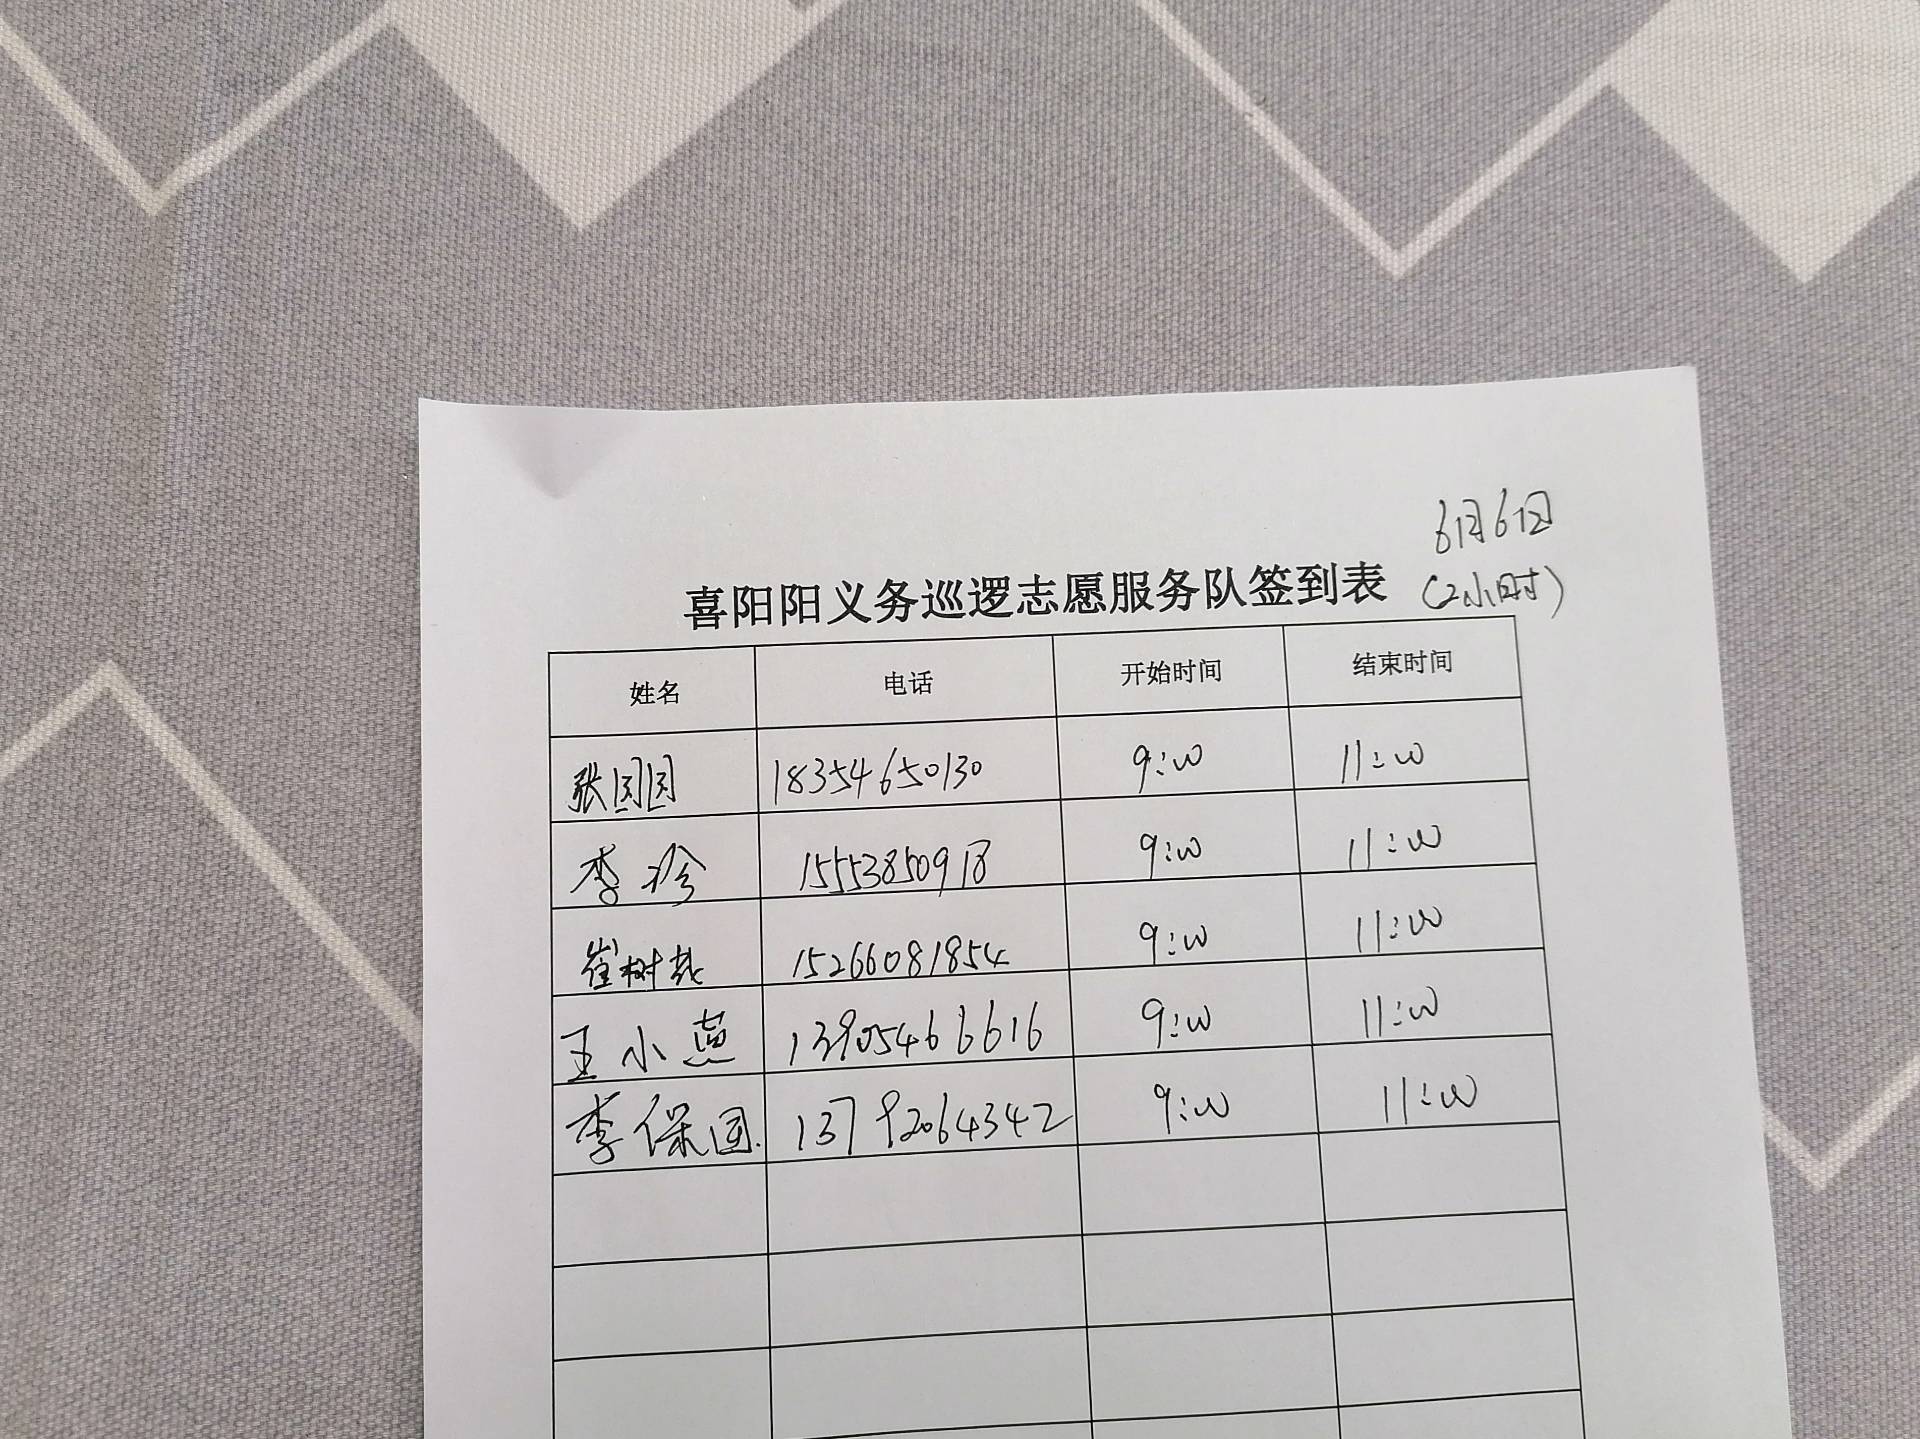 6月6日
喜阳阳义务巡逻志愿服务队签到表 (2小时)
姓名 电话 开始时间 结束时间
张园园 18354650130 9:00 11:00
李珍 15553850918 9:00 11:00
崔树 15266081854 9:00 11:00
王小 13905466616 9:00 11:00
李保国. 13792064342 9:00 11:00